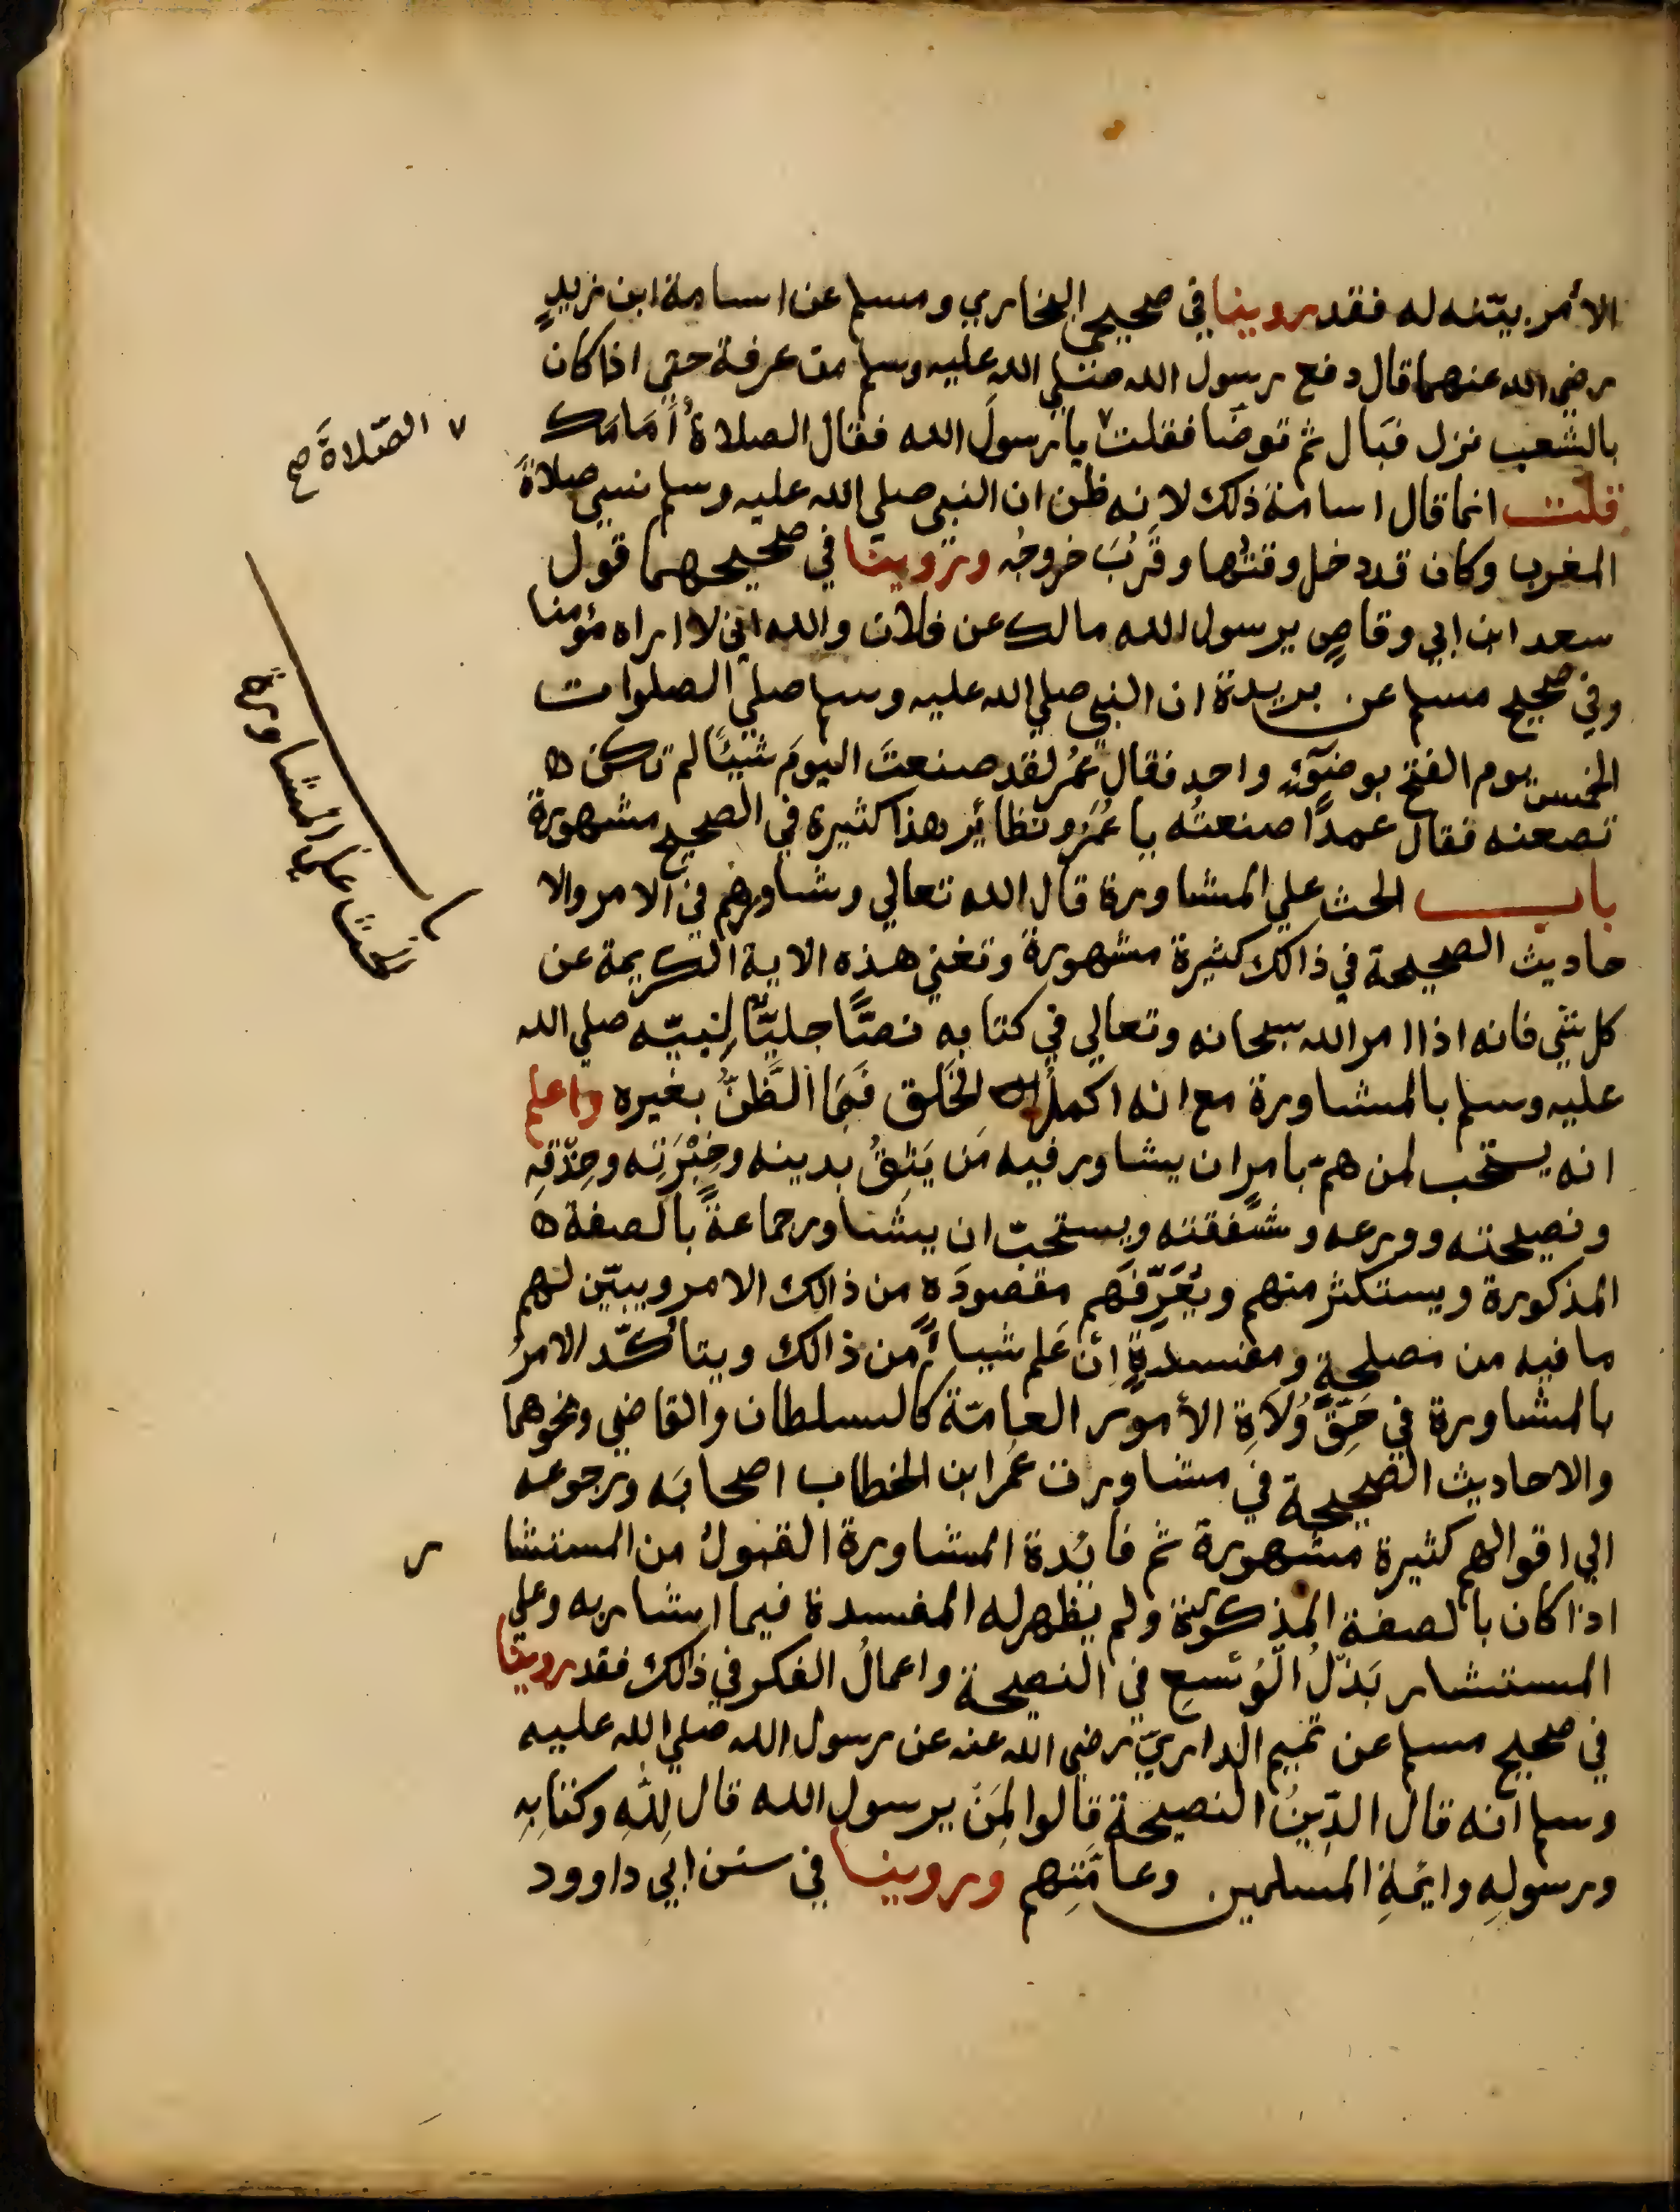 الأمر بيّنه له فقد روينا في صحيحي البخاري ومسلم عن اسامة ابن زيدٍ
رضي الله عنهما قال دفع رسول الله صلي الله عليه وسلم من عرفة حتي اذا كان
بالشعب نزل فبَال ثم توضّا فقلت ٧ يا رسولَ الله فقال الصلاةُ أمَامَك
٧ الصّلاةَ صح
قلت انما قال اسامة ذلك لانه ظن ان النبي صلي الله عليه وسلم نسي صلاةَ
المغرب وكان قد دخل وقتُها وقَرُبَ خروجُه وروينا في صحيحهما قول
سعد ابن ابي وقاصٍ يرسول الله مالك عن فلان والله اني لا اراه مؤمنا
وفي صحيح مسلم عن بريدة ان النبي صلي الله عليه وسلم صلي الصلوات
الخمس يوم الفتح بوضوٓءٍ واحد فقال عُمر لقد صنعتَ اليومَ شيئًا لم تكن ه
تصعنه فقال عمدًا صنعتُه يا عُمَر ونظائر هذا كثيرة في الصحيح مشهورة
باب الحث علي المشاورة قال الله تعالي وشاورهم في الامر والا
باب الحث علي المشاورة
حاديث الصحيحة في ذالك كثيرة مشهورة وتغني هذه الاية الكريمة عن
كل شي فانه اذا امر الله سبحانه وتعالي في كتابه نصًّا جليًّا لِنبيّه صلي الله
عليه وسلم بالمشاورة مع انه اكملُ الخَلق فَمَا الظَّنُّ بغيره واعلم
انه يستحب لمن همّ بامر ان يشاور فيه مَن يَثِقُ بدينه وخِبْرَتِه وحِذْقِه
ونصيحته وورعه وشَفقته ويستحبّ ان يشاور جماعةً بالصفة ه
المذكورة ويستكثر منهم ويُعَرِّفَهم مقصودَه من ذالك الامر ويبيّن لهم
ما فيه من مصلحةٍ ومفسدةٍ ان عَلم شياءً من ذالك ويتأكّد الامرُ
بالمشاورة في حَقِّ وُلاَةِ الأمور العامّة كالسلطان والقاضي ونحوهما
والاحاديث الصحيحة في مشاورت عُمَر ابن الخطاب اصحابَه ورجوعه
الي اقوالهم كثيرة مشهورة ثم فائدة المشاورة القبولُ من المستشا
ر
اذا كان بالصفة المذكورة ولم يظهر له المفسدة فيما اشار به وعلي
المستشار بَذْلُ الوُسْعِ في النصيحة واعمالُ الفكر في ذالك فقد روينا
في صحيح مسلم عن تميم الداريّ رضي الله عنه عن رسول الله صلي الله عليه
وسلم انه قال الدّينُ النصيحة قالوا لِمَنْ يرسول الله قال لِلّهِ وكتابِهِ
ورسولِهِ وايمّةِ المسلمين وعامَّتِهم وروينا في سنن ابي داوود